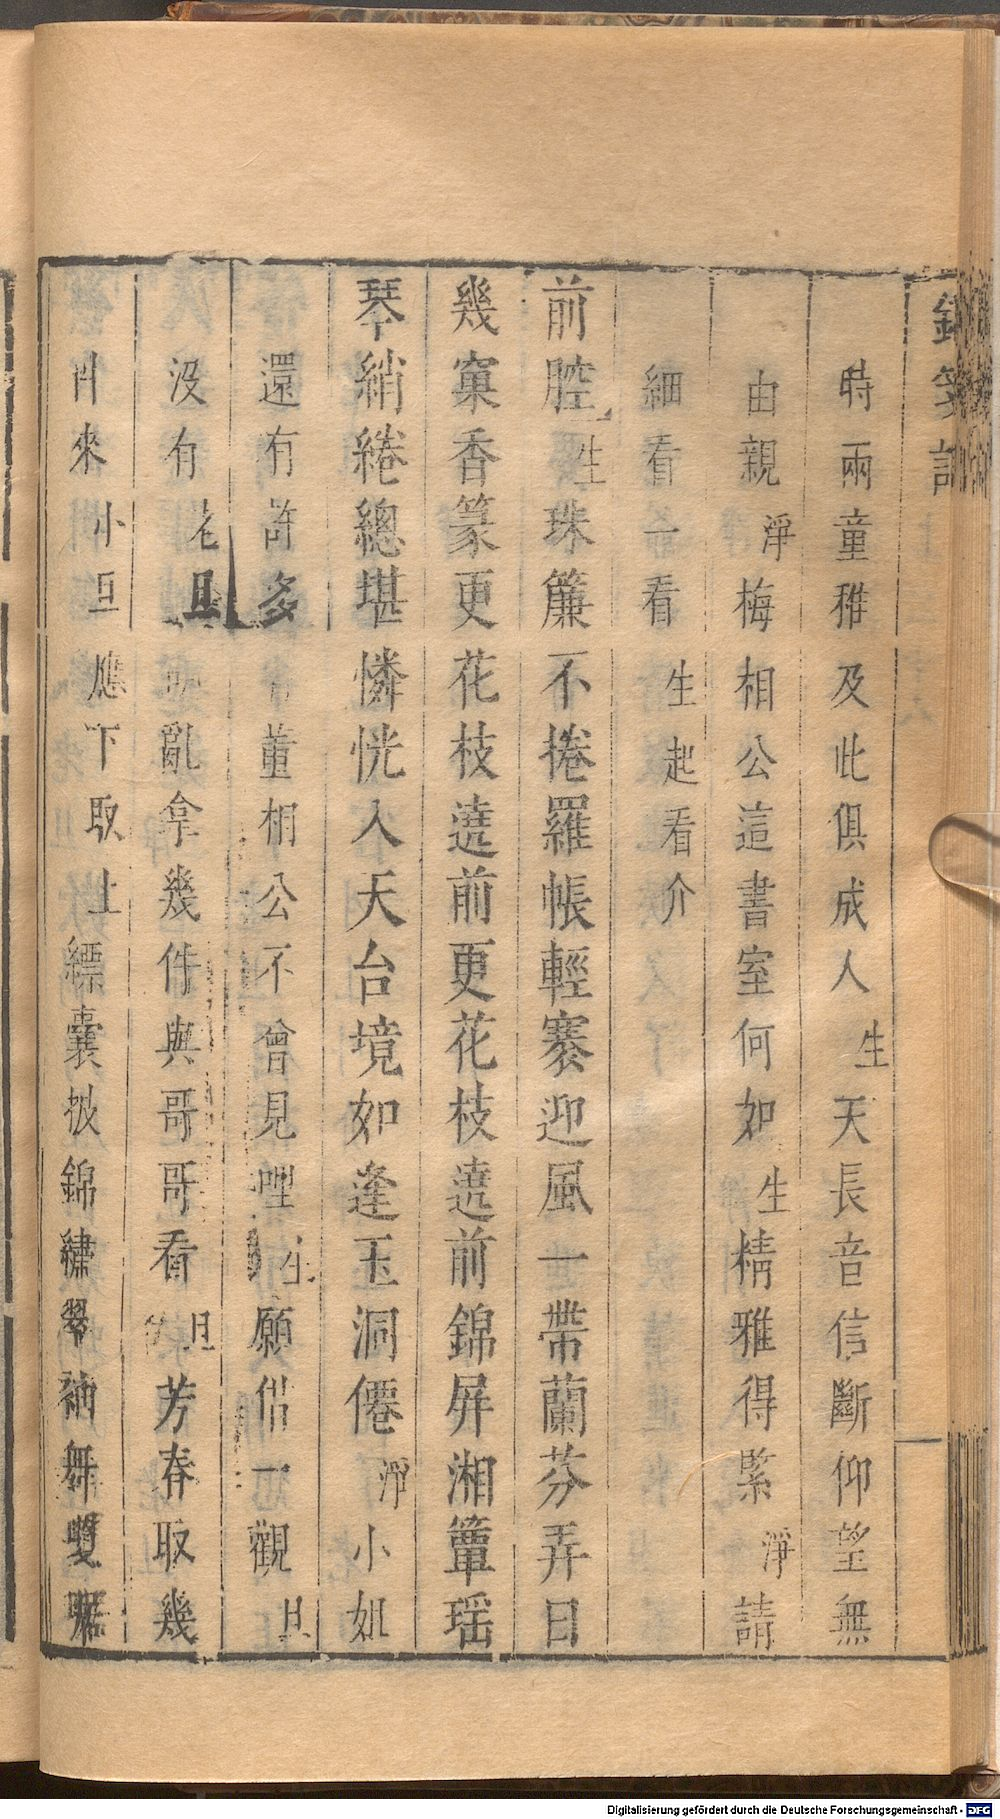 時兩童稚及此俱成人生天長音信斷仰望無
由親淨梅相公這書室何如生精雅得緊淨請
細看一看生起看介
前腔生珠簾不捲羅帳輕褰迎風一帶蘭芬弄日
幾窠香篆更花枝遶前更花枝遶前錦屏湘簟瑶
琴綃綣總堪憐恍入天台境如逢玉洞僊淨小姐
還有許多董相公不曾見哩生願借一觀旦
没有老旦亂拿幾件與哥哥看旦芳春取幾
來小旦應下取上縹囊披錦繡翠袖舞雙
Digitalisierung gefördert durch die Deutsche Forschungsgemeinschaft - DFG